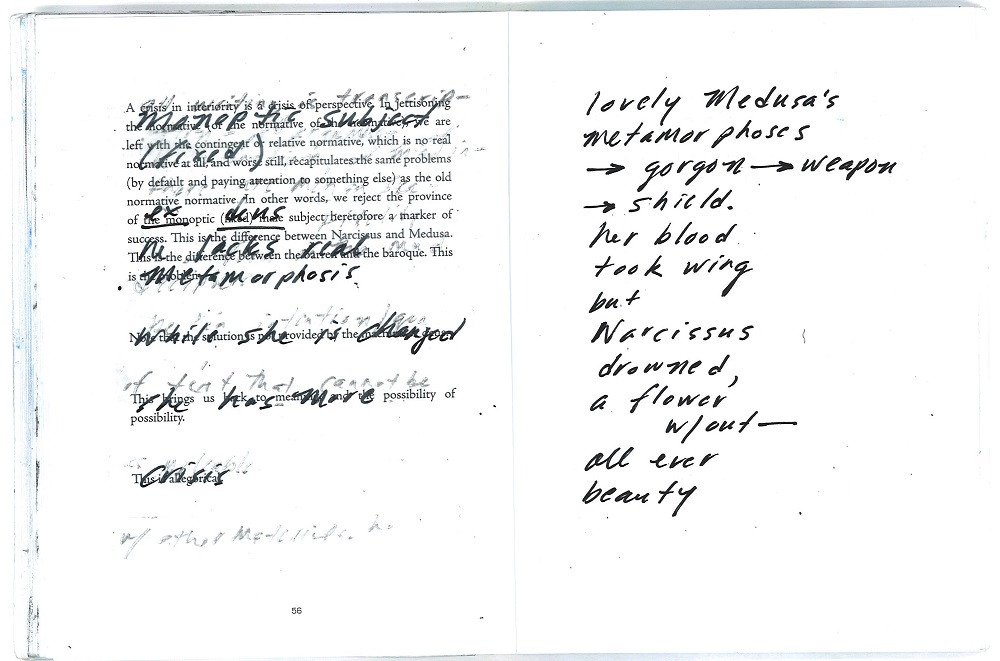 A crisis in interiority is a crisis of perspective. In jettisoning
the normative (of the normative of the we are
left with the contingent or relative normative, which is no real
normative at all, and worse still, recapitulates the same problems
(by default and paying attention to something else) as the old
normative normative. In other words, we reject the province
of the monoptic (fixed) male subject heretofore a marker of
success. This is the difference between Narcissus and Medusa.
This is the difference between the barren and the baroque. This
is the problem
Note that the solution is not provided by the
This brings us back to and the possibility of
possibility.
This is allegorical.
Monoptic subject
(fixed)
ex deus
he lacks real
metamorphosis.
while she is changed
she has more
crisis
of text that cannot be
of other materials.
56
lovely Medusa's
metamorphoses
→ gorgon → weapon
→ shield.
her blood
took wing
but
Narcissus
drowned,
a flower
w/out —
all ever
beauty